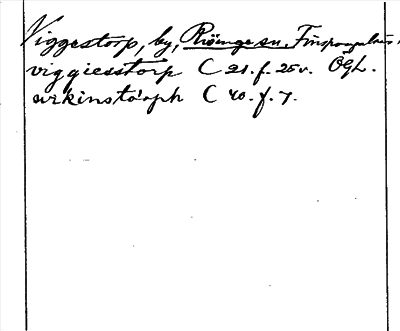 Viggestorp, by, Risinge sn. Finspongaläns
viggiesstorp C 21. f. 25v. ÖgL.
wikinstorph C 40. f. 7.